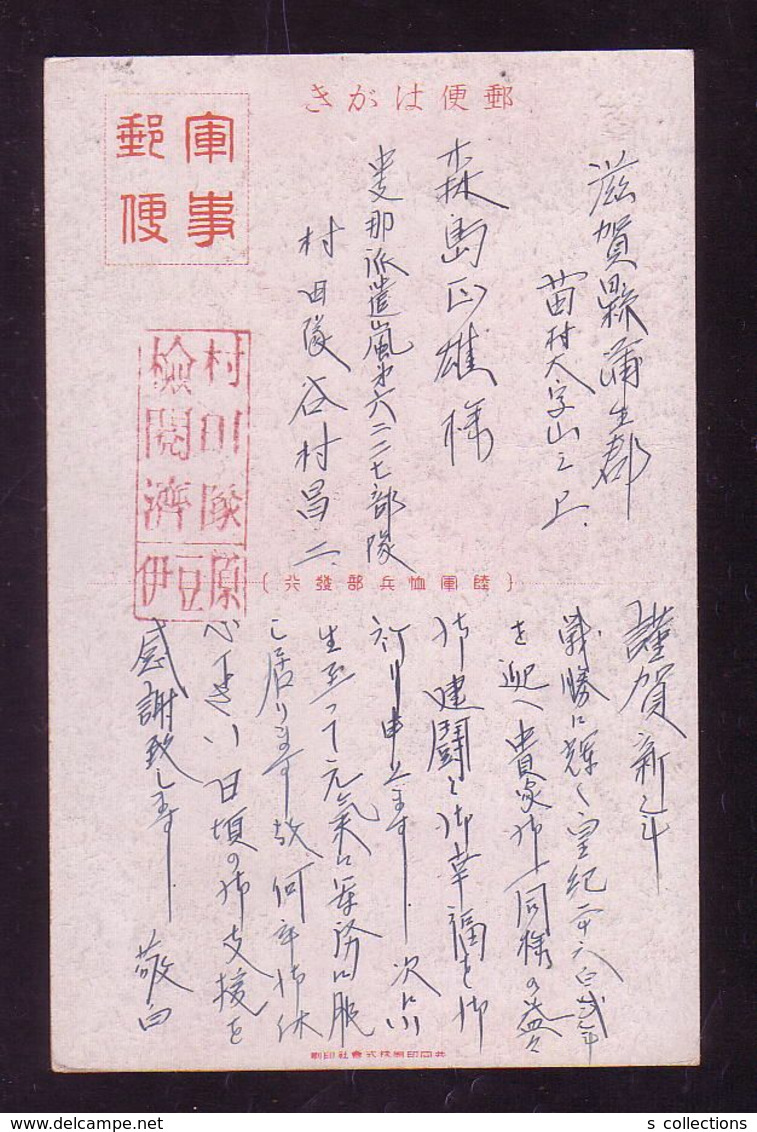 郵便はがき
軍事
郵便
滋賀縣蒲生郡
苗村大字山之上
森島正雄様
支那派遣嵐第六二二七部隊
村田隊谷村昌二
村川隊
檢閲濟
伊豆原
(陸軍恤兵部發行)
謹賀新年
戦勝に輝く皇紀二千六百弐年
を迎へ貴家御一同様の益々
御健闘と御幸福を御
祈り申上ます 次に小
生至って元気に軍務に服
し居ります故何卒御休
心下さい 日頃の御支援を
感謝致します 敬白
共同印刷株式會社印刷
s collections